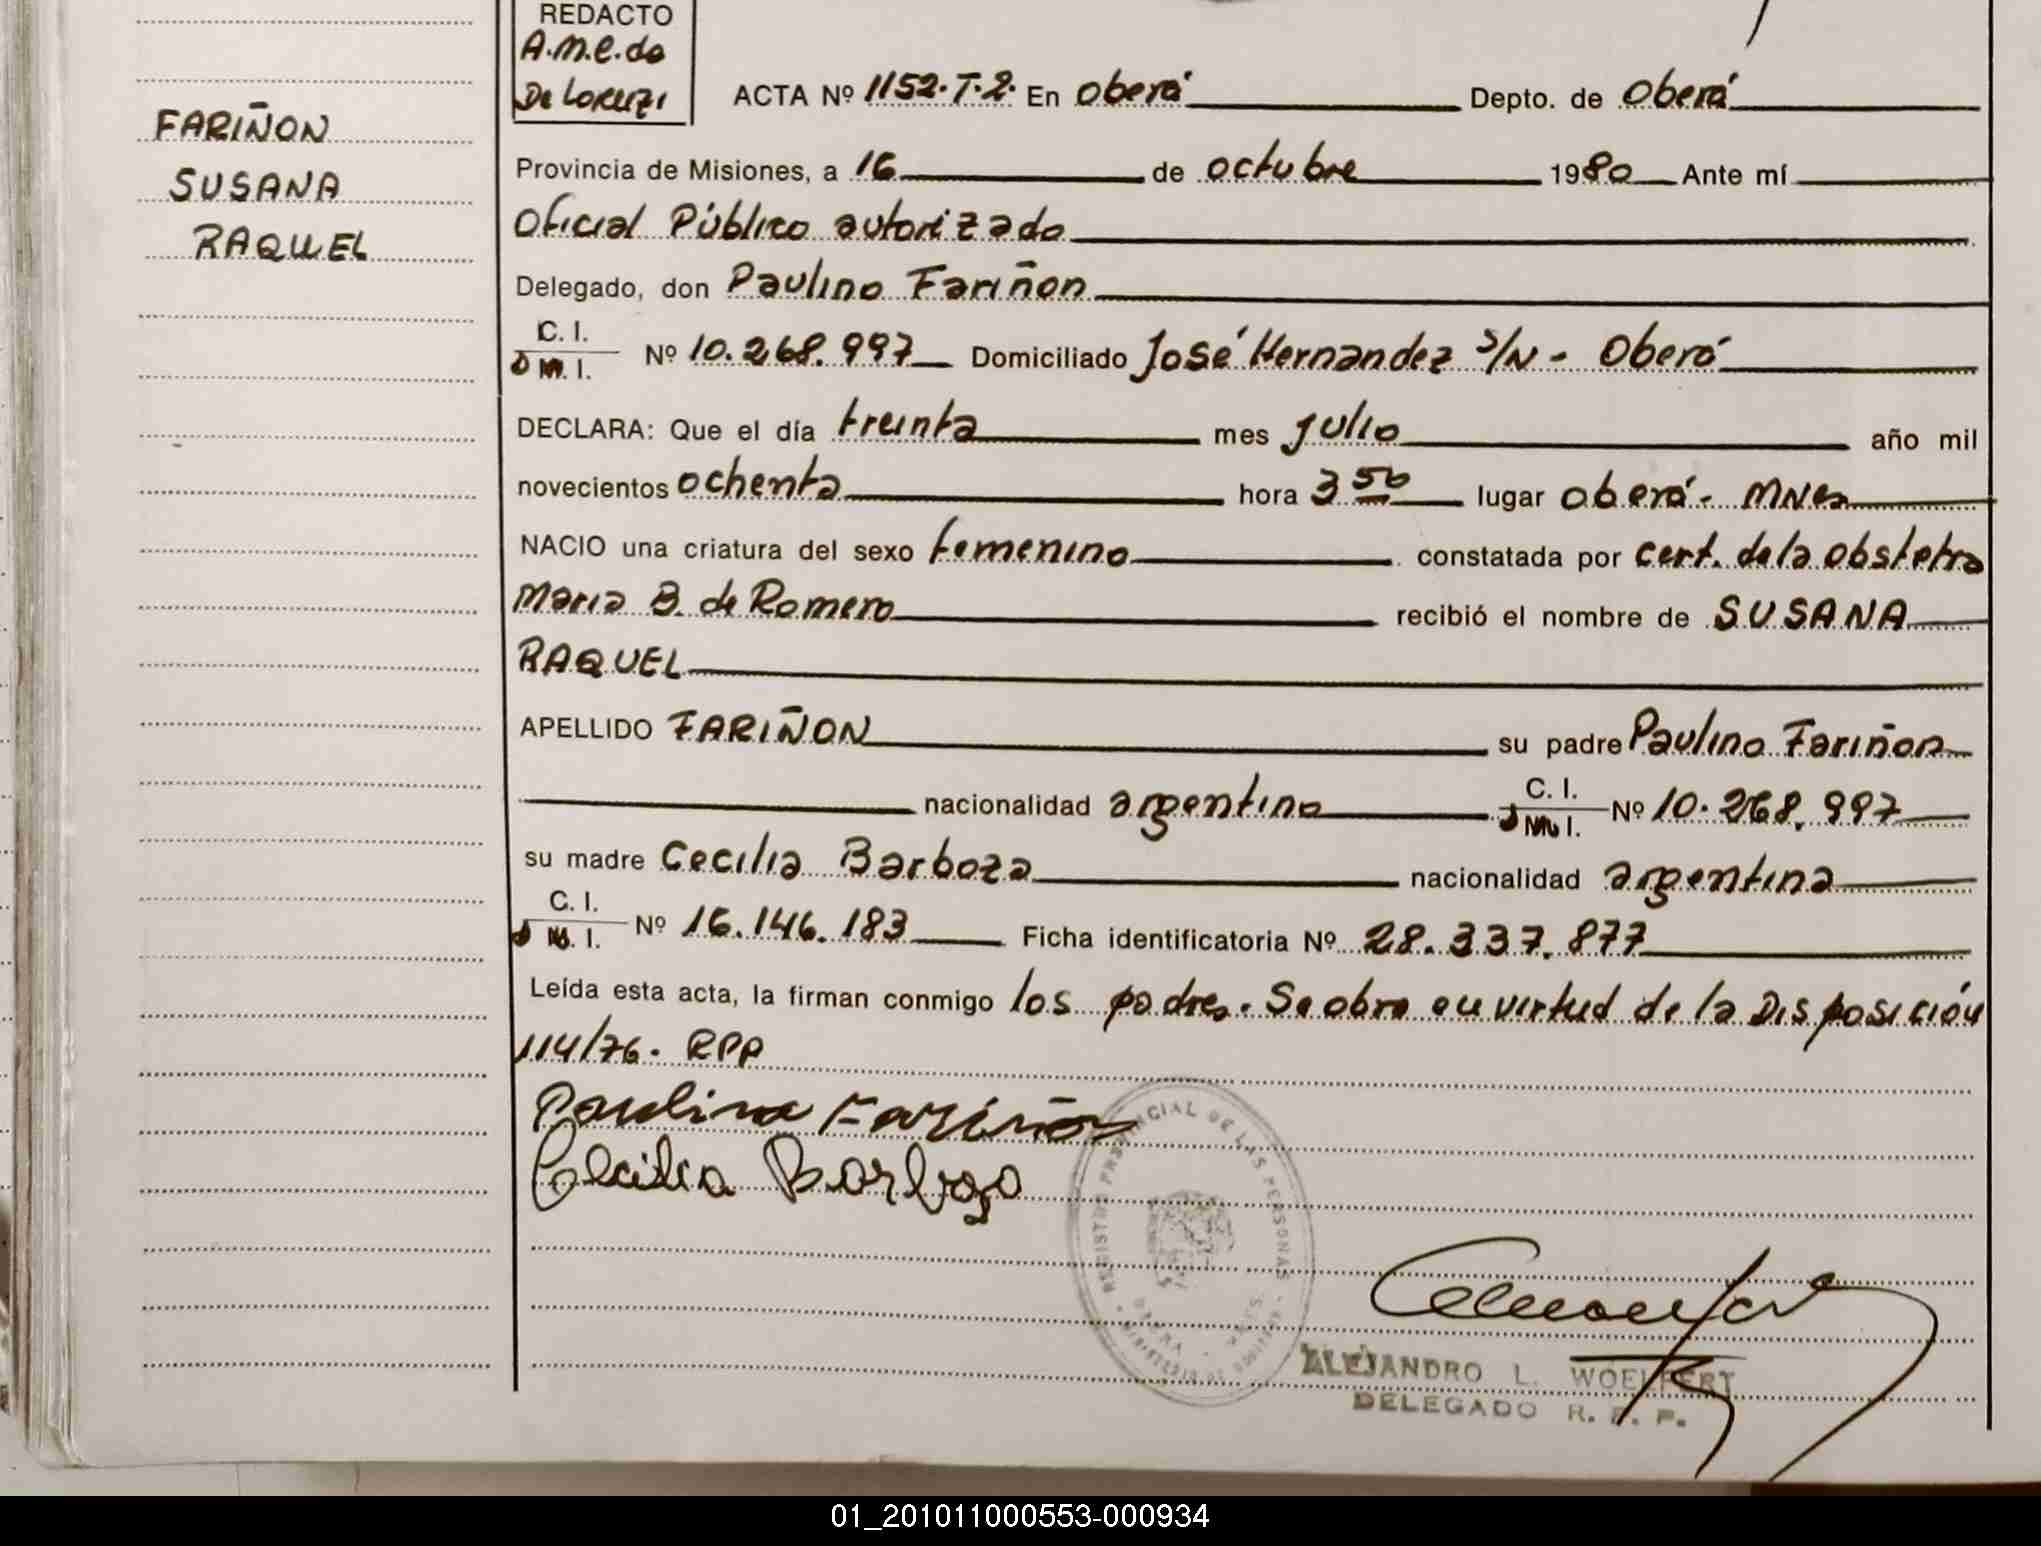 REDACTO
A.M.C.de
De Lorenzi
FARIÑON
SUSANA
RAQUEL
ACTA Nº 1152.T.2. En Oberá Depto. de Oberá
Provincia de Misiones, a 16 de octubre 1980 Ante mí
Oficial Público autorizado
Delegado, don Paulino Fariñon
C. I.
D M. I. Nº 10.268.997 Domiciliado José Hernandez S/N - Oberá
DECLARA: Que el día treinta mes julio año mil
novecientos ochenta hora 3 50 lugar Oberá - MNes
NACIO una criatura del sexo femenino constatada por cert. de la obstetra
Maria B. de Romero recibió el nombre de SUSANA
RAQUEL
APELLIDO FARIÑON su padre Paulino Fariñon
nacionalidad argentino C. I. Nº 10.268.997
su madre Cecilia Barboza nacionalidad argentina
C. I.
Nº 16.146.183 Ficha identificatoria Nº 28.337.877
Leída esta acta, la firman conmigo los padres. Se obra en virtud de la Disposición
114/76. RPP
Paulino Fariñon
Cecilia Barboza
REGISTRO PROVINCIAL DE LAS PERSONAS
ALEJANDRO L. WOELFERT
DELEGADO R. P. P.
01_201011000553-000934